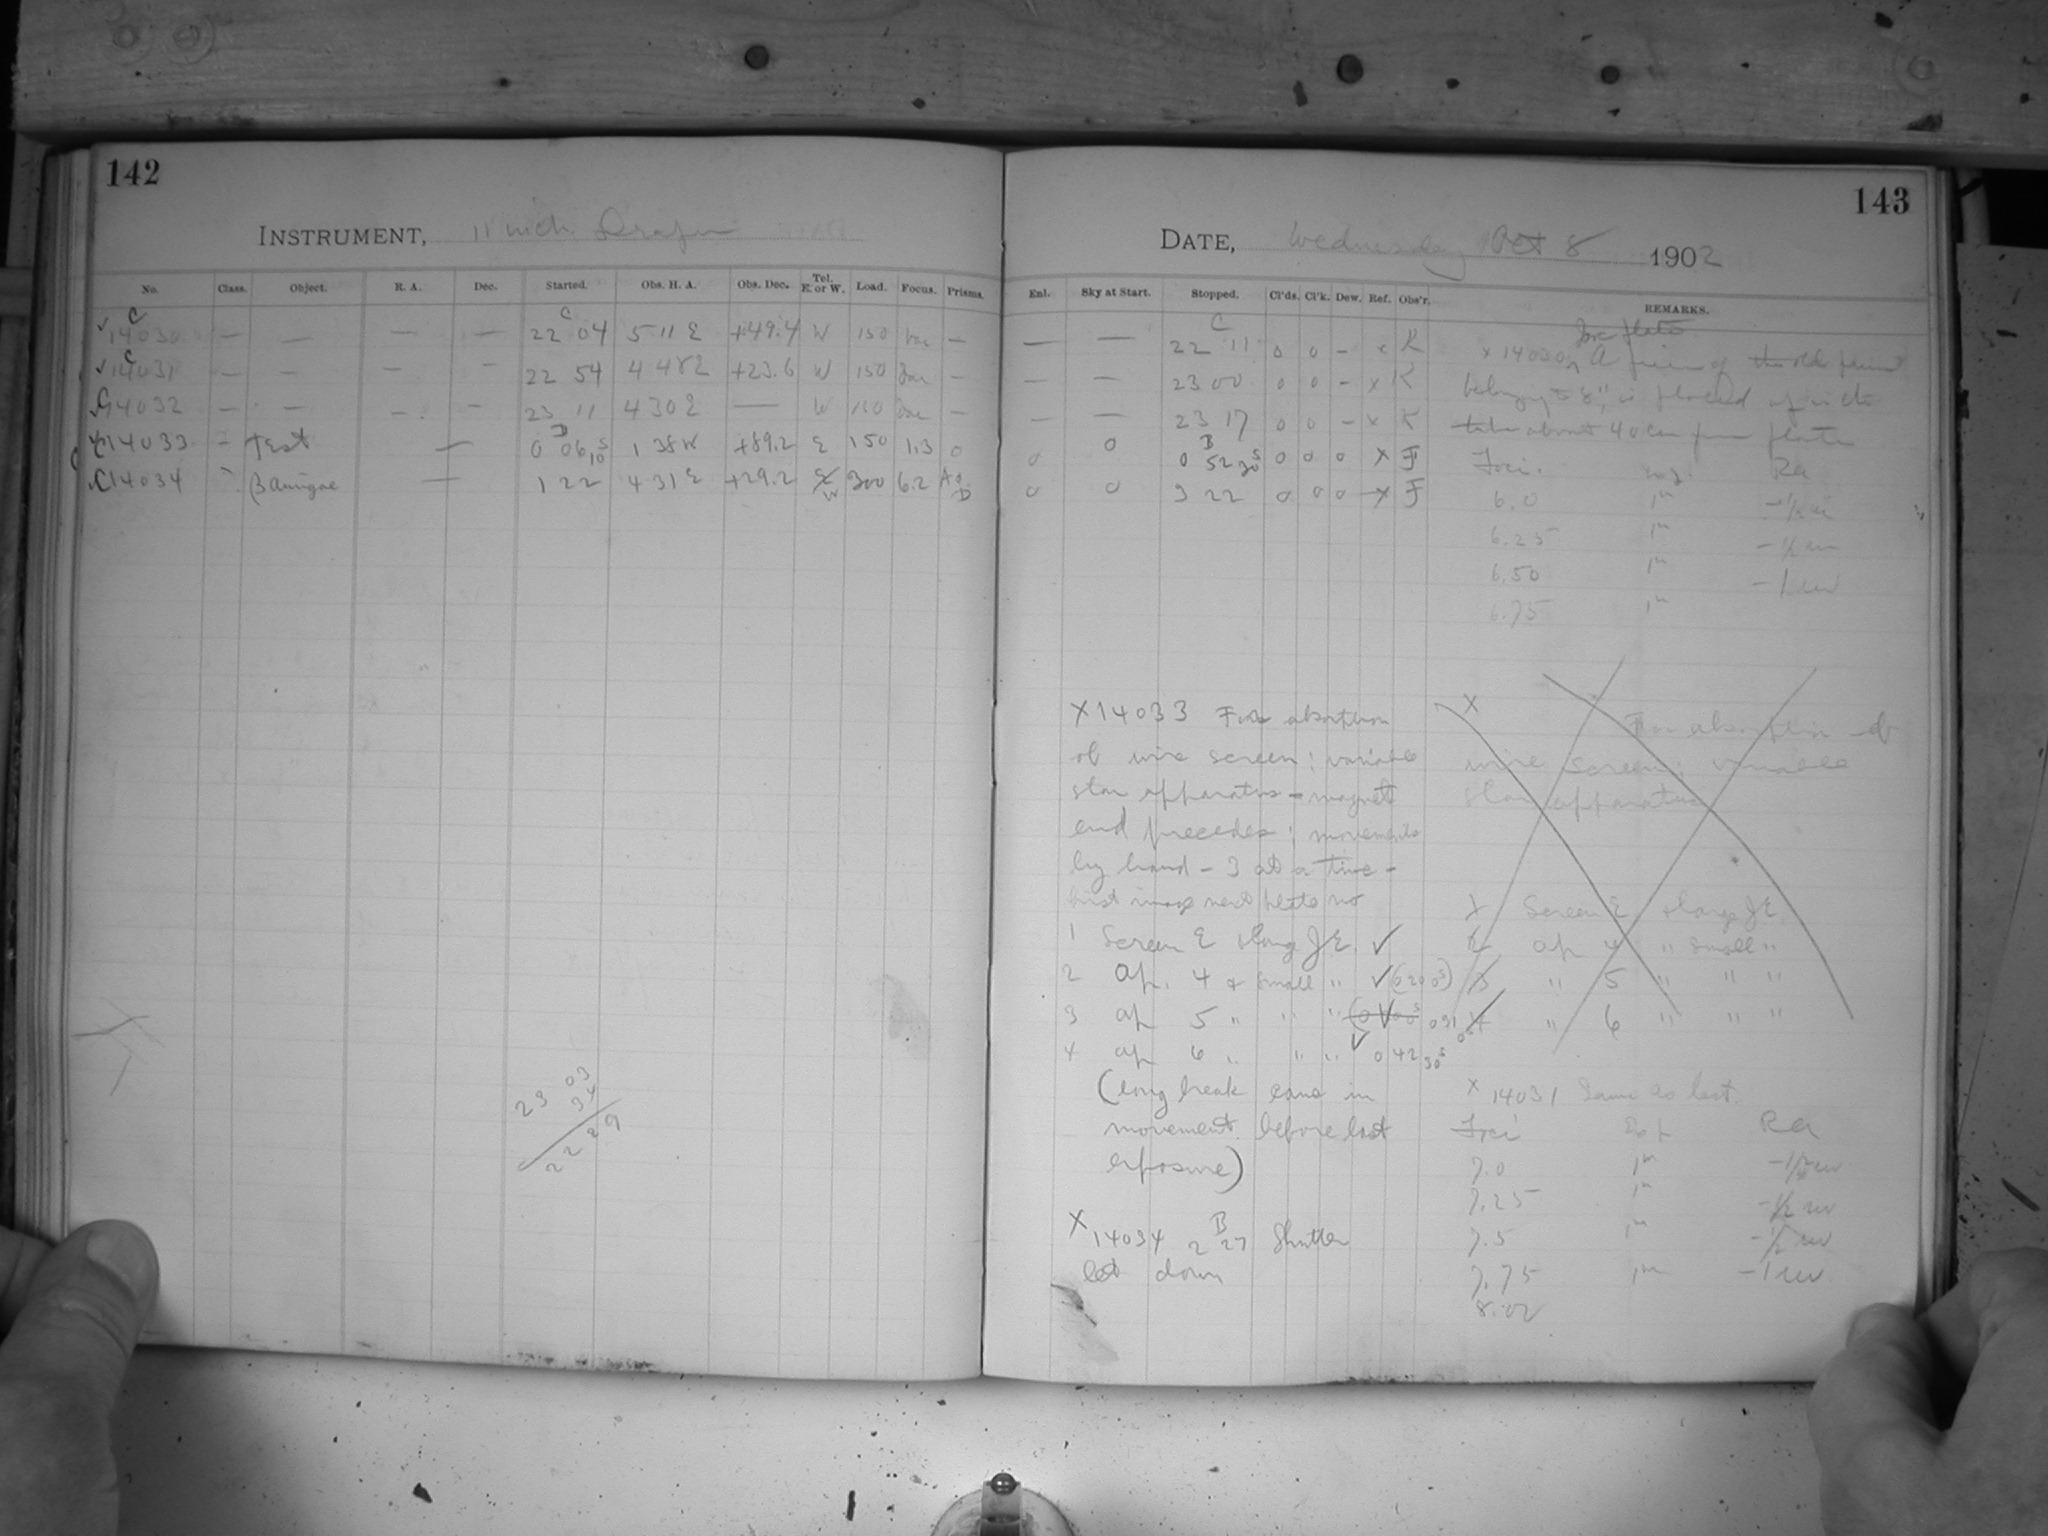 142
INSTRUMENT, 11 inch Draper
No. Class. Object. R. A. Dec. Started. Obs. H. A. Obs. Dec. Tel. E. or W. Load. Focus. Prisms.
C C
✓ 14030 — — — — 22 04 5 11 E +49.4 W 150 — 
✓ C 14031 — — — — 22 54 4 48 E +23.6 W 150 —
C 14032 — — — — 23 11 4 30 E — W 150 —
C 14033 – Test — 0 06 10s 1 38 W +89.2 E 150 1.3 0
C 14034 β Aurigae — 1 22 4 31 E +29.2 W 300 6.2
23 03
34
22 29
143
DATE, Wednesday Oct 8 1902
Enl. Sky at Start. Stopped. Cl'ds. Cl'k. Dew. Ref. Obs'r. REMARKS.
C
— — 22 11 0 0 – x K
— — 23 00 0 0 – x K
— — 23 17 0 0 – x K
B
0 0 0 52 30s 0 0 0 X F
0 0 3 22 0 0 0 X F
x 14030 A of the old
belonging to 8", is placed
about 40 cm from plate
Foci. Ra
6.0 1m -1/2
6.25 1m -1/2
6.50 1m - 1
6.75 1m
X 14033 For absorption
of wire screen; variable
star apparatus – magnet
end precedes; movements
by hand – 3 at a time –
first image next plate no
1 Screen E ✓
2 ap. 4 & small " ✓ (0 20 0s)
3 ap 5 " " " 0 31
4 ap 6 " " " ✓ 0 42 30s
(long break came in
movement before last
exposure)
X 14034 2 B 27 Shutter
let down
X
For absorption of
wire screen; variable
star apparatus
X Screen E
ap 4 " small "
3 " 5 " " "
4 " 6 " " "
x 14031 Same as last.
Foci Ra
7.0 1m -1/2
7.25 1m -1/2
7.5 1m -1/2
7.75 1m -1
8.02